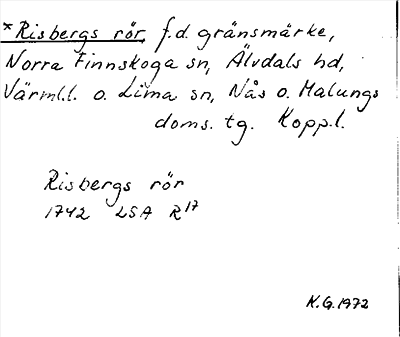 *Risbergs rör, f.d. gränsmärke,
Norra Finnskoga sn, Älvdals hd,
Värml.l. o. Lima sn, Nås o. Malungs
doms. tg. Kopp.l.
Risbergs rör
1742 LSA R17
K.G. 1972